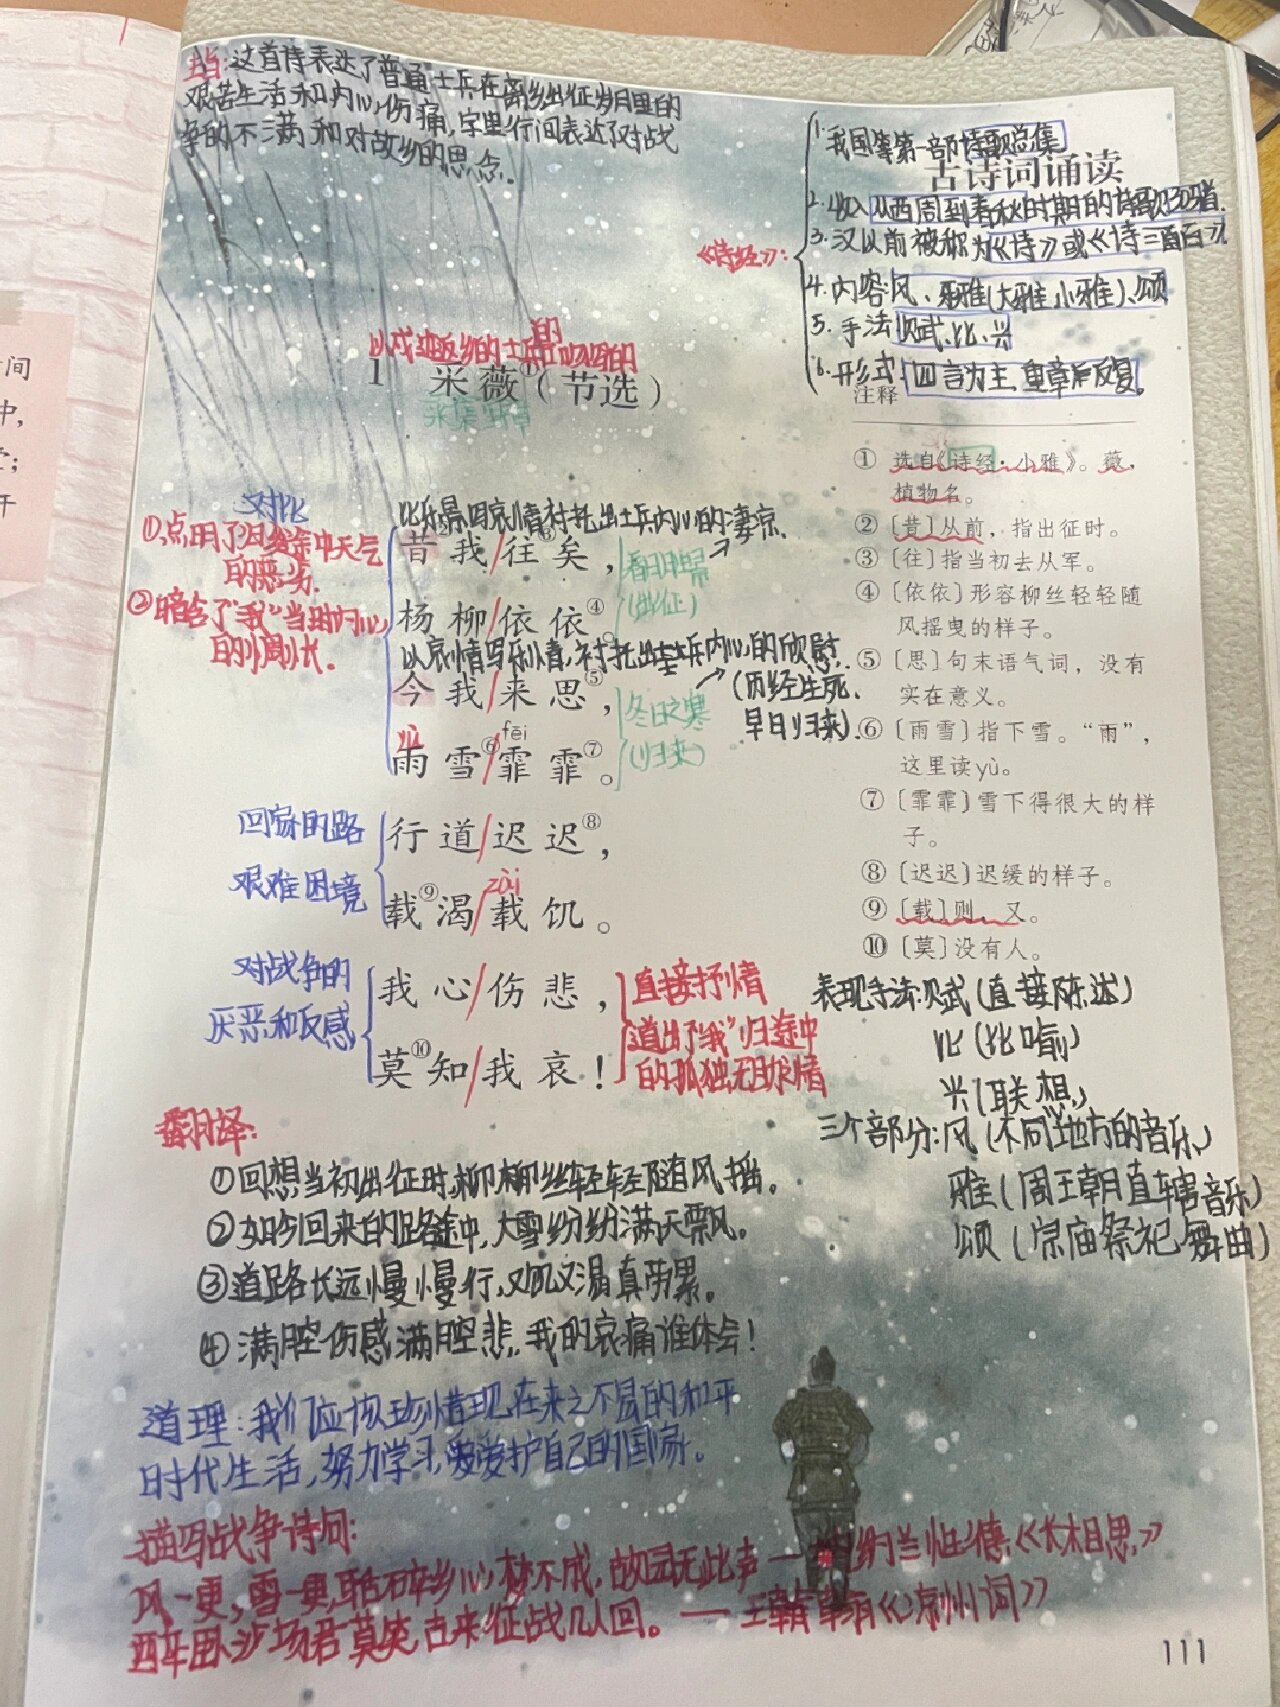 主旨:这首诗表达了普通士兵在离乡出征岁月里的
艰苦生活和内心伤痛,字里行间表达了对战
争的不满和对故乡的思念。
间
中,
;
开
《诗经》:
1.我国第一部诗歌总集
古诗词诵读
2.收入从西周到春秋时期的诗歌305首.
3.汉以前被称为《诗》或《诗三百》.
4.内容:风、雅(大雅,小雅)、颂
5.手法:赋、比、兴
6.形式:四言为主,重章反复。
以戍边返乡的士兵的口吻写的
1 采薇①(节选)
采集野草
注释
① 选自《诗经·小雅》。薇,
植物名。
② 〔昔〕从前,指出征时。
③ 〔往〕指当初去从军。
④ 〔依依〕形容柳丝轻轻随
风摇曳的样子。
⑤ 〔思〕句末语气词,没有
实在意义。
⑥ 〔雨雪〕指下雪。“雨”,
这里读yù。
⑦ 〔霏霏〕雪下得很大的样
子。
⑧ 〔迟迟〕迟缓的样子。
⑨ 〔载〕则,又。
⑩ 〔莫〕没有人。
对比
①点明了归途中天气
的恶劣.
②暗含了“我”当时内心
的惆怅.
以乐景写哀情衬托出士兵内心的凄凉.
昔②我/往③矣,
春日
(出征)
杨柳/依依④。
以哀情写乐情,衬托出士兵内心的欣慰.
(历经生死,
早日归来).
今我/来思⑤,
冬日之寒
(归来)
fēi
雨雪⑥/霏霏⑦。
回家的路
艰难困境
行道/迟迟⑧,
zài
载⑨渴/载饥。
对战争的
厌恶和反感
我心/伤悲,
莫⑩知/我哀!
直接抒情
道出了“我”归途中
的孤独无助情
表现手法:赋(直接陈述)
比(比喻)
兴(联想)
三个部分:风(不同地方的音乐)
雅(周王朝直辖音乐)
颂(宗庙祭祀舞曲)
翻译:
①回想当初出征时,柳丝轻轻随风摇。
②如今回来的路途中,大雪纷纷满天飘。
③道路长远慢慢行,又饥又渴真劳累。
④满腔伤感满腔悲,我的哀痛谁体会!
道理:我们应该珍惜现在来之不易的和平
时代生活,努力学习,要爱护自己的国家。
描写战争诗句:
风一更,雪一更,聒碎乡心梦不成,故园无此声——纳兰性德《长相思》
醉卧沙场君莫笑,古来征战几人回。——王翰《凉州词》
111